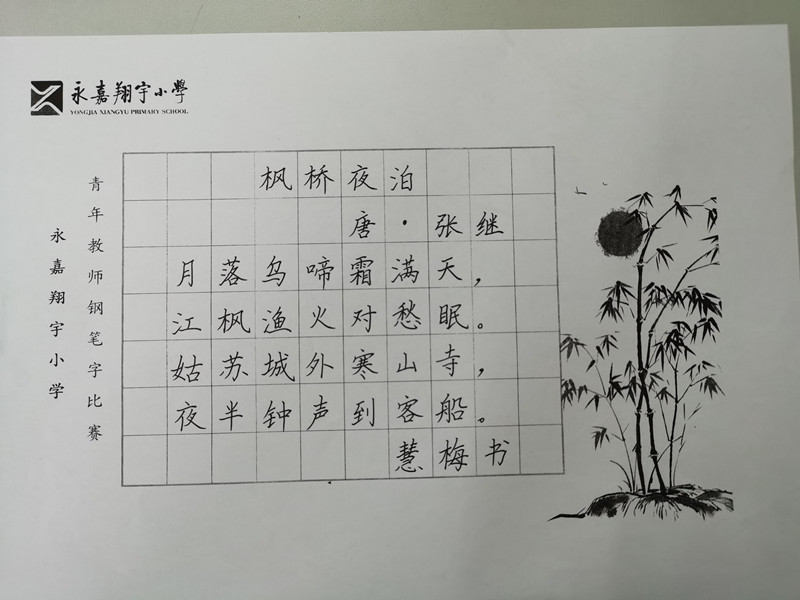 永嘉翔宇小學
YONGJIA XIANGYU PRIMARY SCHOOL
青年教师钢笔字比赛
永嘉翔宇小学
枫桥夜泊
唐·张继
月落鸟啼霜满天，
江枫渔火对愁眠。
姑苏城外寒山寺，
夜半钟声到客船。
慧梅书